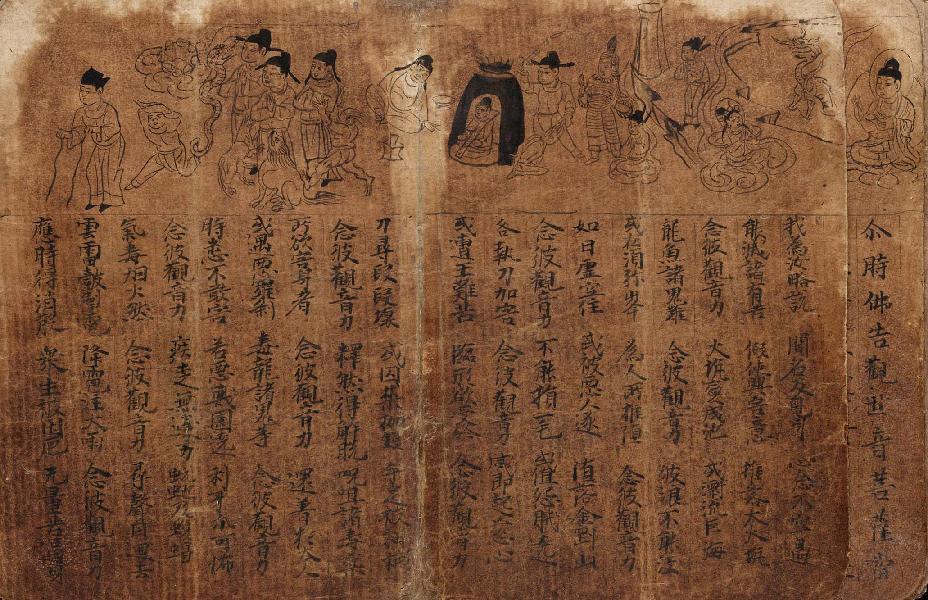 尒時佛告觀世音菩薩
我為汝略說 聞名及見身 心念不空過
能滅諸有苦 假使興害意 推落大火坑
念彼觀音力 火坑變成池 或漂流巨海
龍魚諸鬼難 念彼觀音力 波浪不能沒
或在須弥峯 為人所推墮 念彼觀音力
如日虛空住 或被惡人逐 墮落金剛山
念彼觀音力 不能損一毛 或值怨賊遶
各執刀加害 念彼觀音力 咸即起慈心
或遭王難苦 臨形欲壽終 念彼觀音力
刀尋段段壞 或囚禁枷鎖 手足被杻械
念彼觀音力 釋然得解脫 呪咀諸毒藥
所欲害身者 念彼觀音力 還著於本人
或遇惡羅剎 毒龍諸鬼等 念彼觀音力
時悉不敢害 若惡獸圍遶 利牙爪可怖
念彼觀音力 疾走無邊方 蚖虵及蝮蝎
氣毒烟火然 念彼觀音力 尋聲自迴去
雲雷鼓掣電 降雹澍大雨 念彼觀音力
應時得消散 衆生被困厄 无量苦逼身